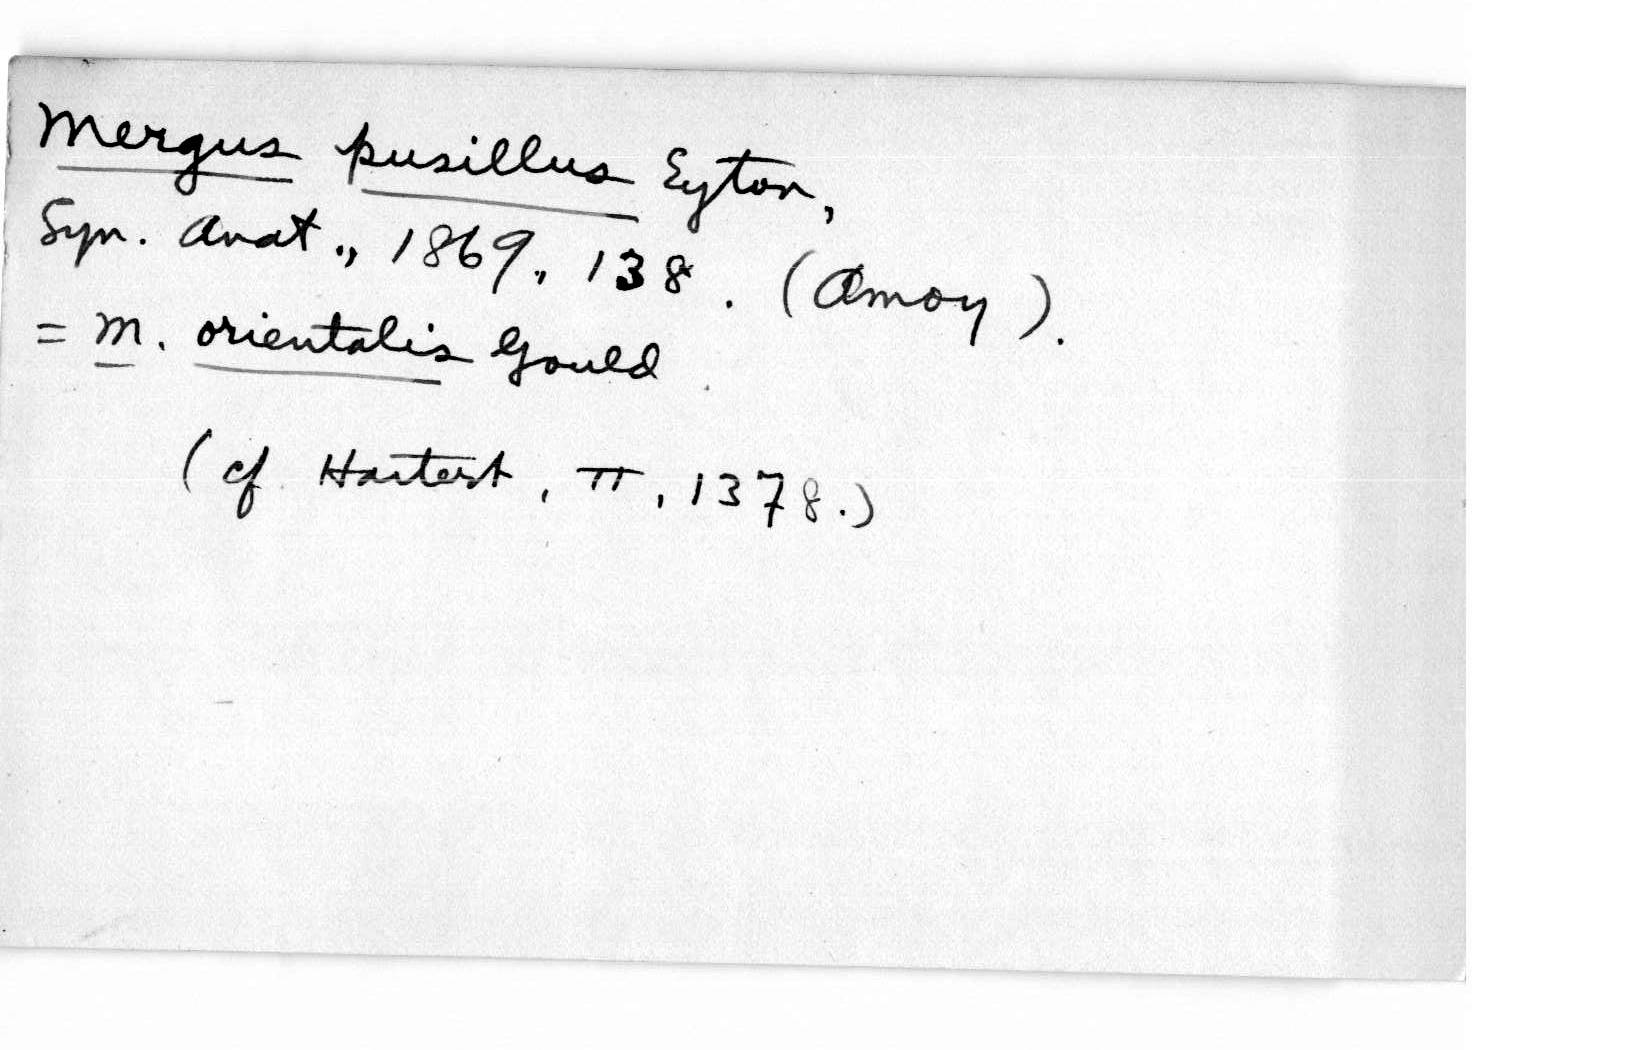 Mergus pusillus Eyton,
Syn. Anat., 1869, 138. (Amoy).
= M. orientalis Gould
(cf. Hartert, II, 1378.)